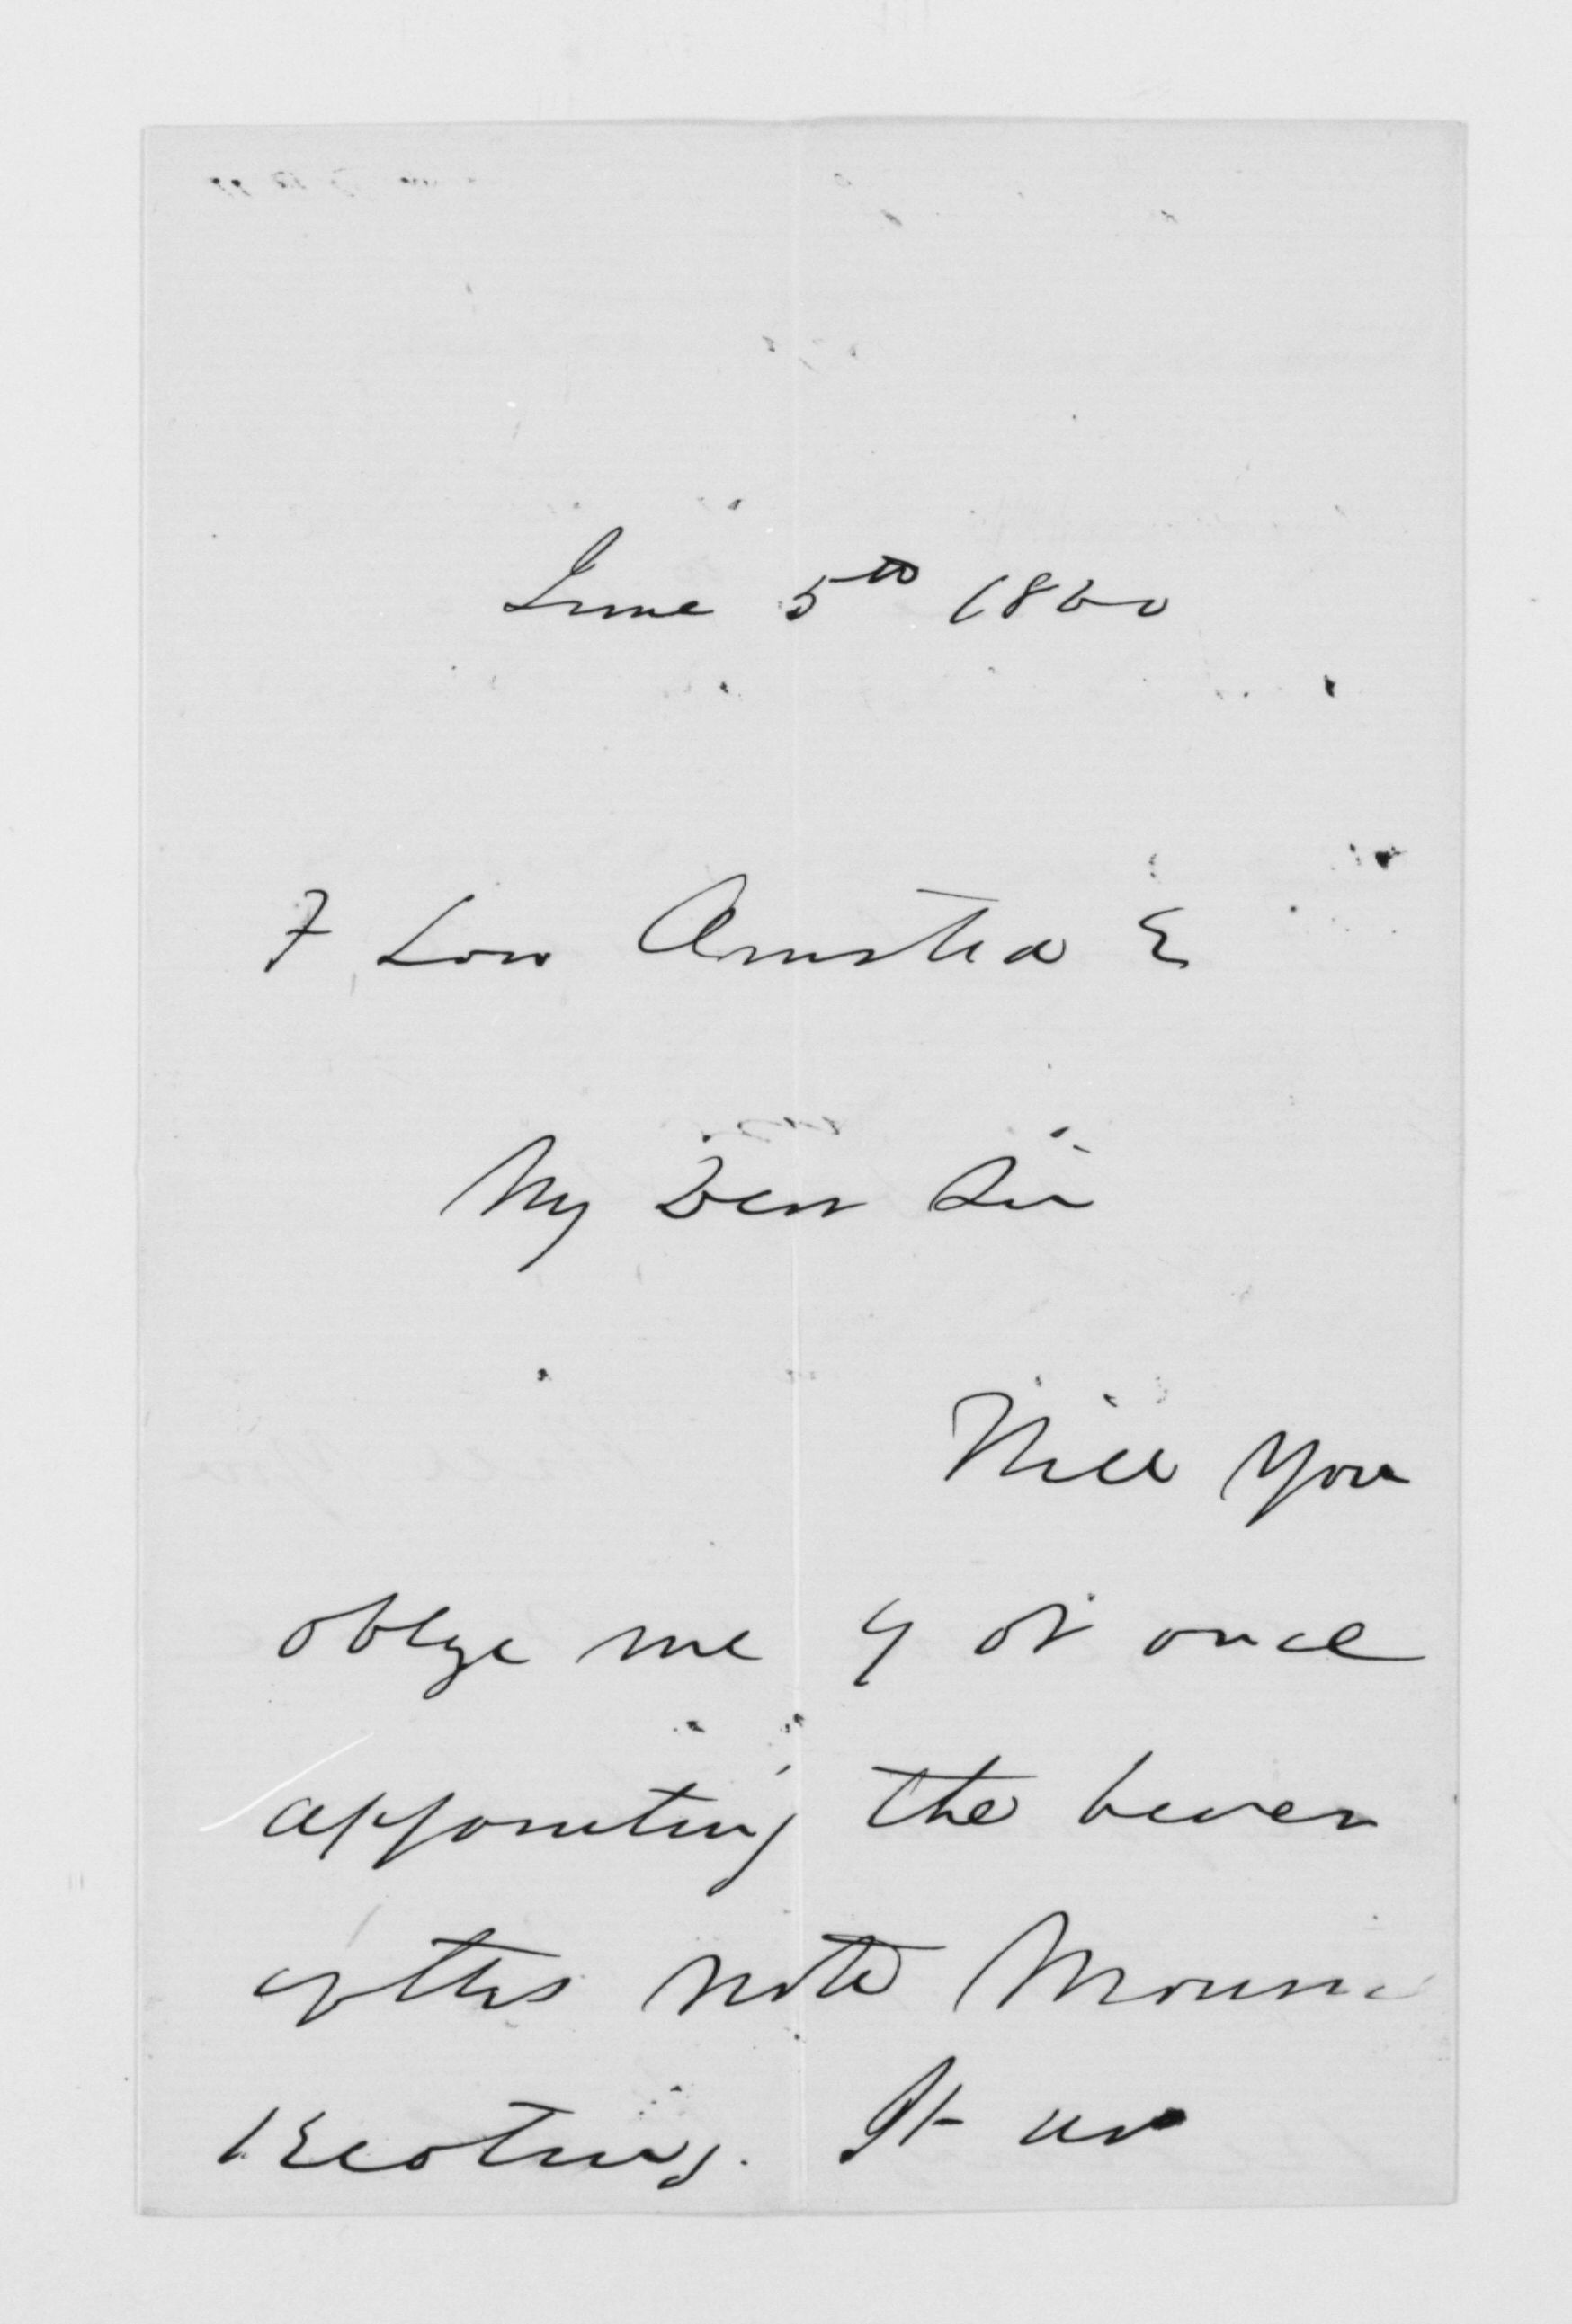 June 5th 1860
F Law Olmsted E
My Dear Sir
Will you
oblige me by at once
appointing the bearer
of this note
Keating. It is